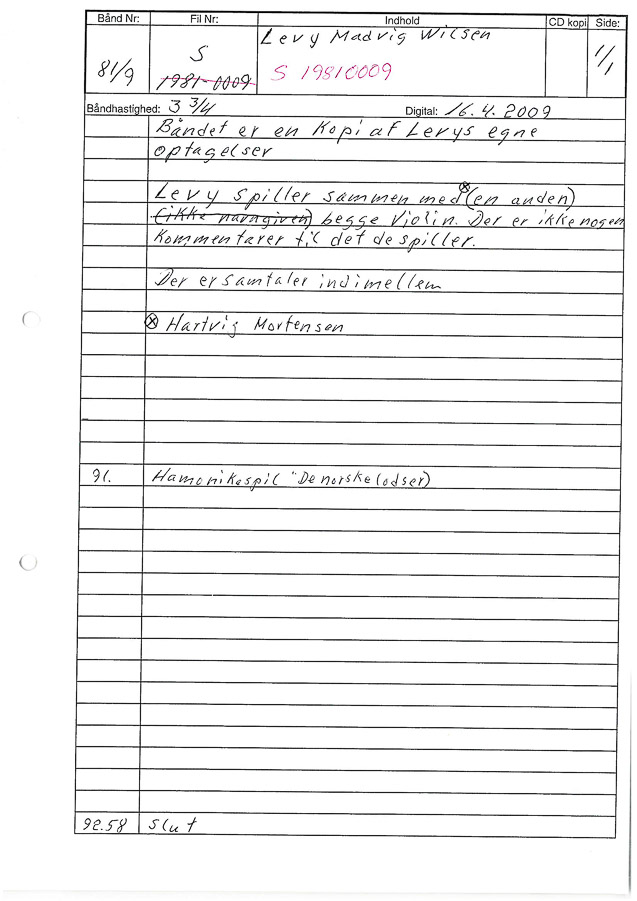 Bånd Nr: Fil Nr: Indhold CD kopi Side:
81/9 S 1981-0009 Levy Madvig Wilsen 1/1
S 19810009
Båndhastighed: 3 3/4 Digital: 16.4.2009
Båndet er en Kopi af Levys egne
optagelser
Levy spiller sammen med ⊗ (en anden)
(ikke navngiven) begge Violin. Der er ikke nogen
Kommentarer til det de spiller.
Der er samtaler indimellem
⊗ Hartvig Mortensen
91. Hamonikaspil "De norske lodser)
92.58 Slut